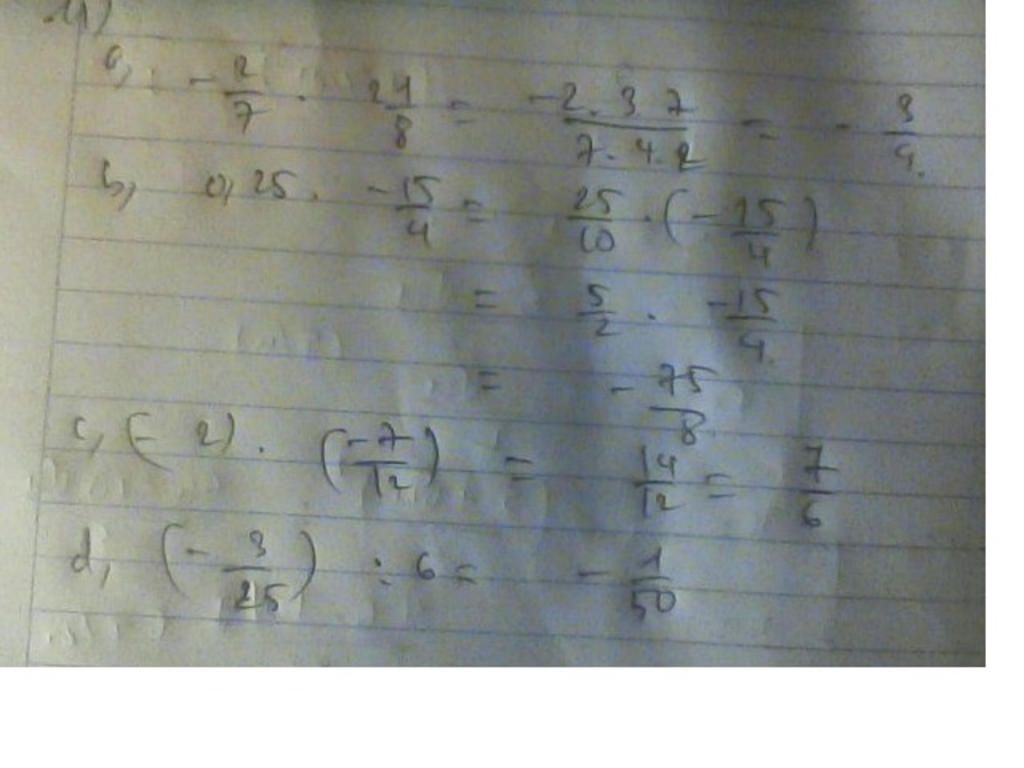 11)
a, -2/7 . 21/8 = -2.3 7 / 7.4.2 = -3/4.
b, 0,25 . -15/4 = 25/10 . (-15/4)
= 5/2 . -15/4
= -75/8
c, (-2) . (-7/12) = 14/12 = 7/6
d, (-3/25) : 6 = -1/50